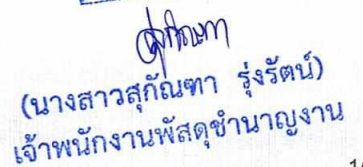 (นางสาวสุกัณฑา รุ่งรัตน์)
เจ้าพนักงานพัสดุชำนาญงาน